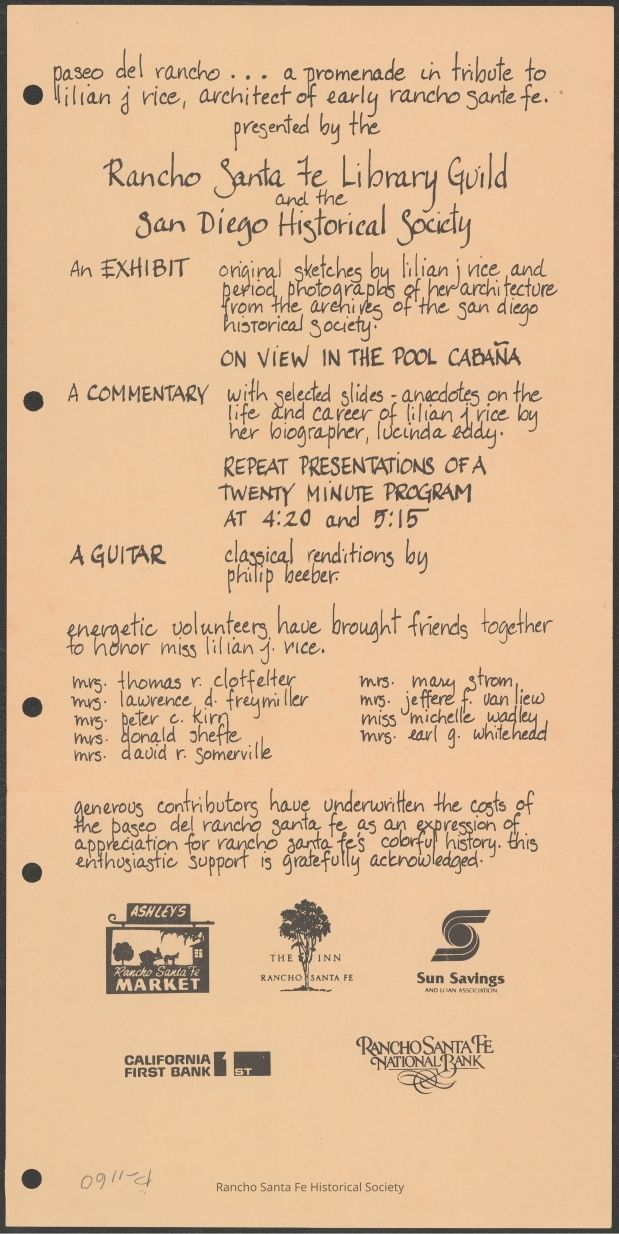 paseo del rancho . . . a promenade in tribute to
lilian j rice, architect of early rancho sante fe.
presented by the
Rancho Santa Fe Library Guild
and the
San Diego Historical Society
An EXHIBIT original sketches by lilian j rice and
period photographs of her architecture
from the archives of the san diego
historical society.
ON VIEW IN THE POOL CABAÑA
A COMMENTARY with selected slides - anecdotes on the
life and career of lilian j rice by
her biographer, lucinda eddy.
REPEAT PRESENTATIONS OF A
TWENTY MINUTE PROGRAM
AT 4:20 and 5:15
A GUITAR classical renditions by
philip beeber.
energetic volunteers have brought friends together
to honor miss lilian j. rice.
mrs. thomas r. clotfelter
mrs. lawrence d. freymiller
mrs. peter c. kirn
mrs. donald shefte
mrs. david r. somerville
mrs. mary strom
mrs. jeffere f. van liew
miss michelle wadley
mrs. earl g. whitehead
generous contributors have underwritten the costs of
the paseo del rancho santa fe as an expression of
appreciation for rancho santa fe's colorful history. this
enthusiastic support is gratefully acknowledged.
ASHLEY'S
Rancho Santa Fe
MARKET
THE INN
RANCHO SANTA FE
Sun Savings
AND LOAN ASSOCIATION
CALIFORNIA
FIRST BANK 1ST
RANCHO SANTA FE
NATIONAL BANK
P-1160
Rancho Santa Fe Historical Society